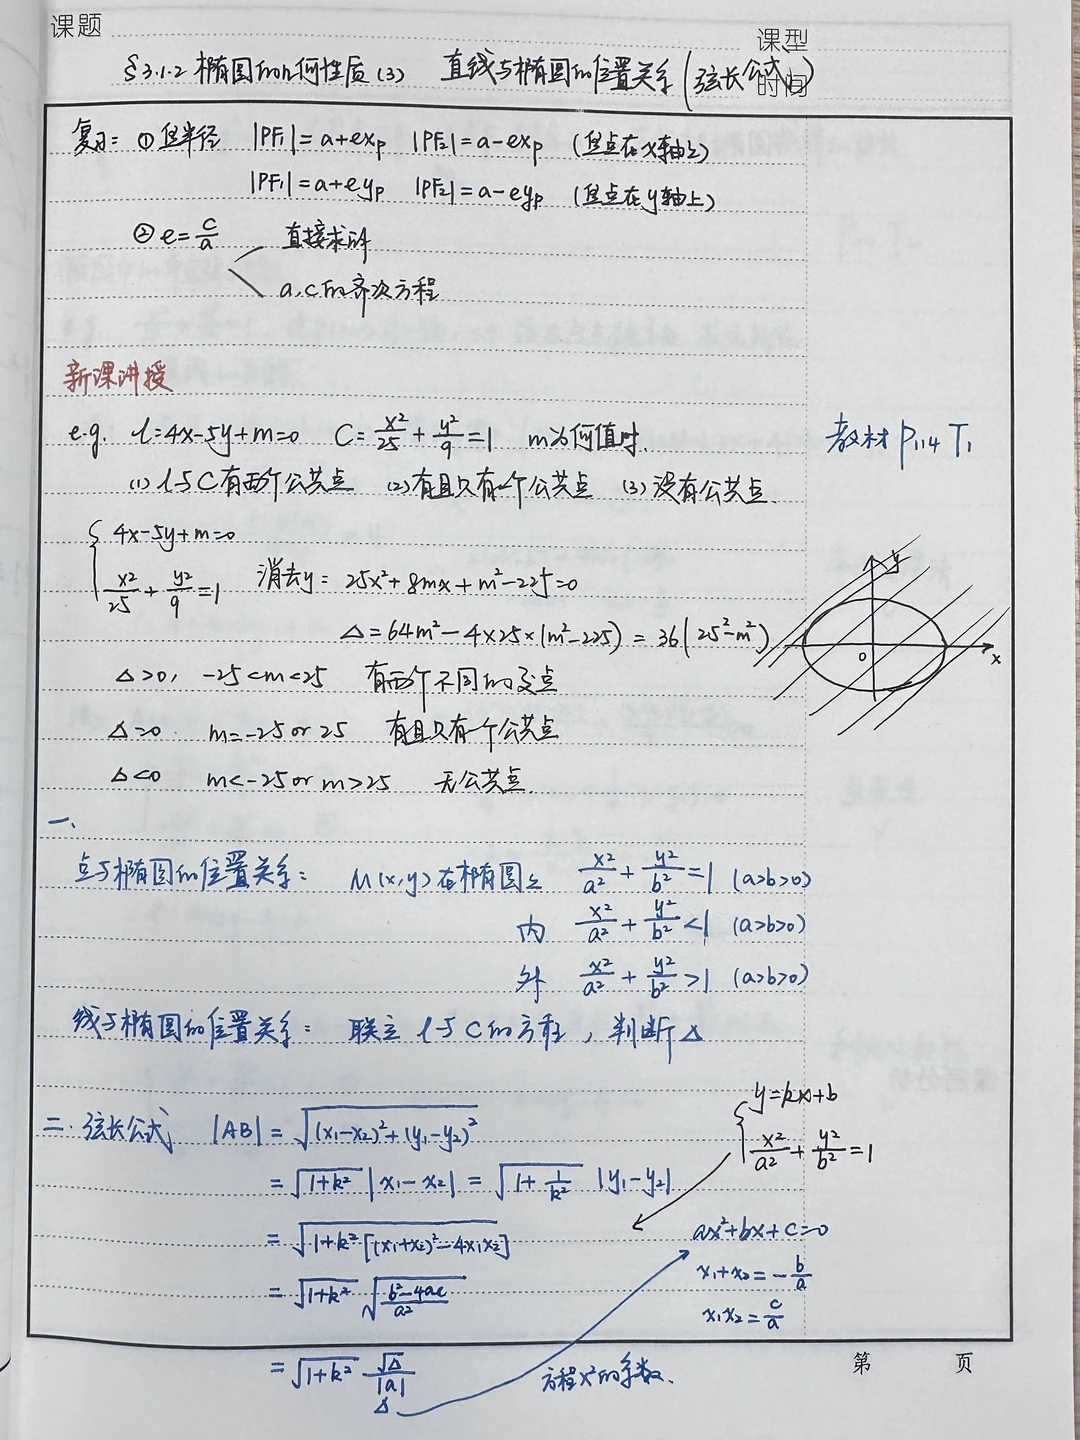 课题
课型
§3.1.2 椭圆的几何性质(3) 直线与椭圆的位置关系(弦长公式)
时间
复习: ① 焦半径 |PF₁|=a+exₚ |PF₂|=a-exₚ (焦点在x轴上)
|PF₁|=a+eyₚ |PF₂|=a-eyₚ (焦点在y轴上)
② e=c/a 直接求
a,c的齐次方程
新课讲授
e.g. l=4x-5y+m=0 C=x²/25+y²/9=1 m为何值时. 教材P₁₁₄T₁
(1) l与C有两个公共点 (2)有且只有一个公共点 (3)没有公共点.
{ 4x-5y+m=0
x²/25+y²/9=1 消去y= 25x²+8mx+m²-225=0
△=64m²-4×25×(m²-225)=36(25²-m²)
△>0, -25<m<25 有两个不同的交点
△=0. m=-25 or 25 有且只有一个公共点
△<0 m<-25 or m>25 无公共点.
y
0
x
一、
点与椭圆的位置关系: M(x,y)在椭圆上 x²/a²+y²/b²=1 (a>b>0)
内 x²/a²+y²/b²<1 (a>b>0)
外 x²/a²+y²/b²>1 (a>b>0)
线与椭圆的位置关系: 联立 l与C的方程, 判断△
二. 弦长公式 |AB|=√((x₁-x₂)²+(y₁-y₂)²)
=√(1+k²)|x₁-x₂|=√(1+1/k²)|y₁-y₂|
=√(1+k²[(x₁+x₂)²-4x₁x₂])
=√(1+k²)√((b²-4ac)/a²)
=√(1+k²) √△/|a|
△
{ y=kx+b
x²/a²+y²/b²=1
ax²+bx+c=0
x₁+x₂=-b/a
x₁x₂=c/a
方程x²的系数.
第 页